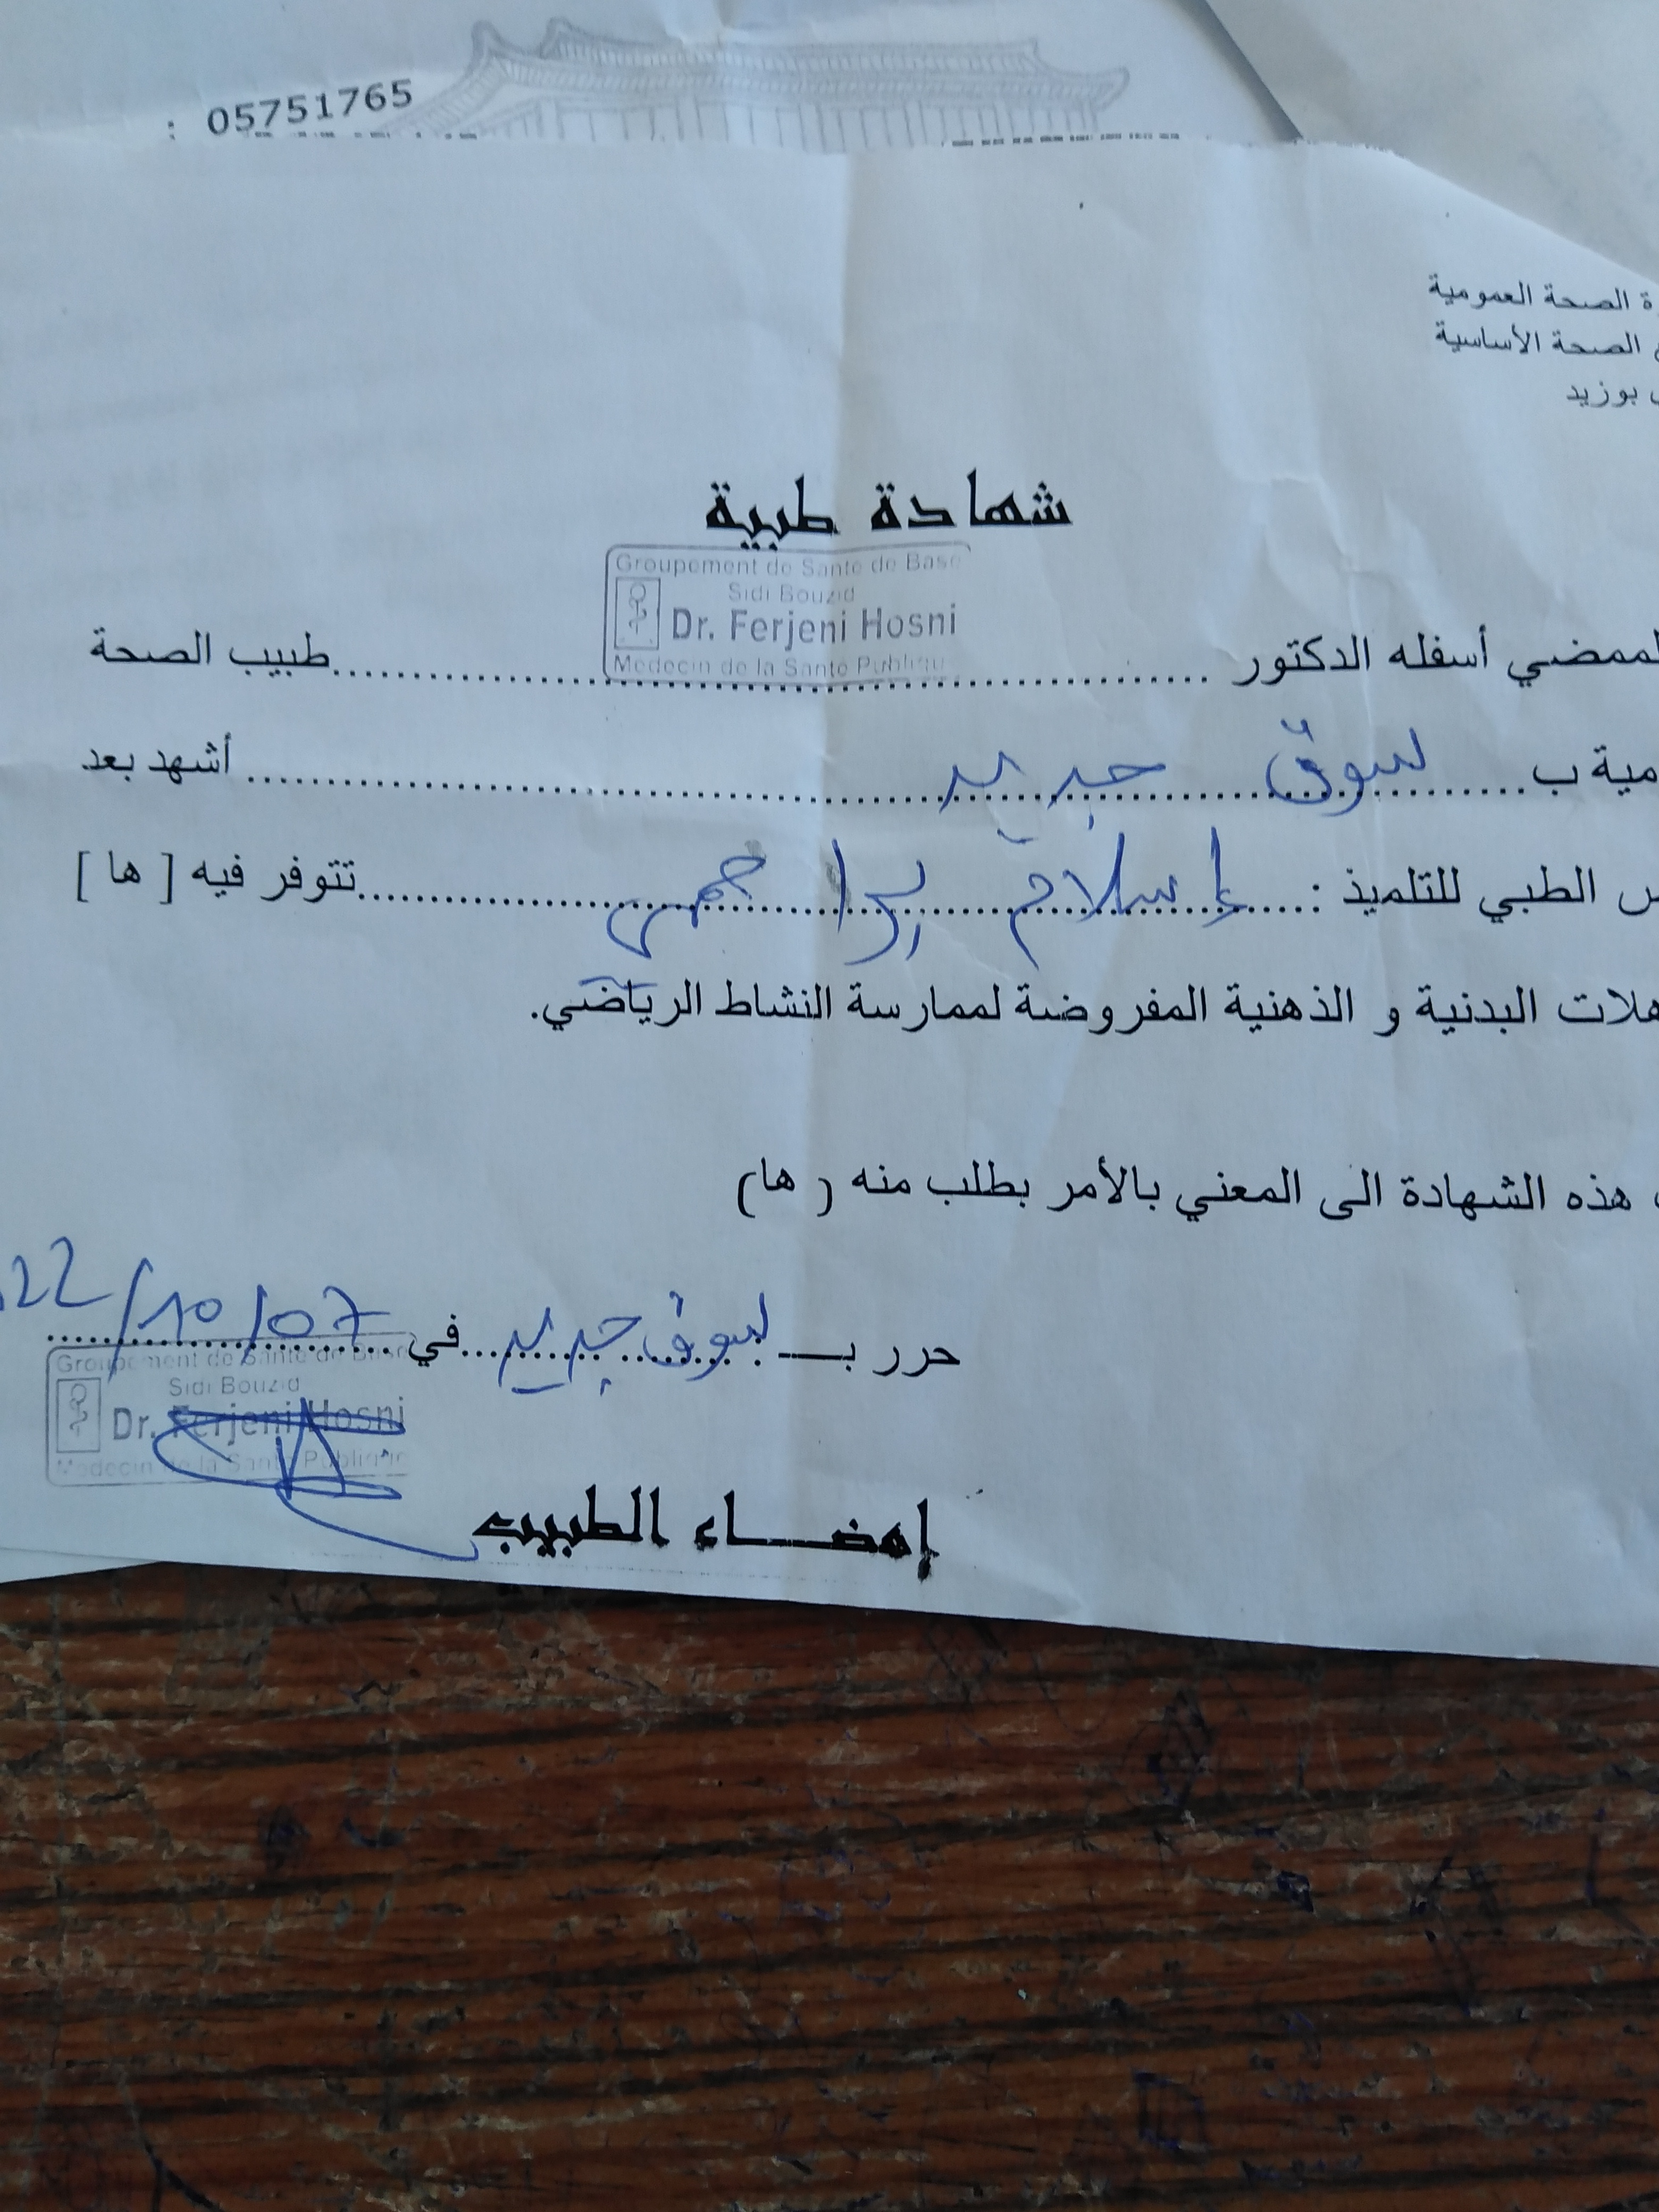 : 05751765
الصحة العمومية
الصحة الأساسية
بوزيد
شهادة طبية
Groupement de Santé de Base
Sidi Bouzid
Dr. Ferjeni Hosni
Medecin de la Santé Publique
الممضي أسفله الدكتور ........................ طبيب الصحة
مية ب ... لسوق جديد ........................ أشهد بعد
الطبي للتلميذ : ... إسلام براهمي ............ تتوفر فيه [ ها ]
هلات البدنية و الذهنية المفروضة لممارسة النشاط الرياضي.
هذه الشهادة الى المعني بالأمر بطلب منه ( ها)
حرر بـ لسوق جديد في 22/10/07
Groupement de Santé de Base
Sidi Bouzid
Dr. Ferjeni Hosni
Medecin de la Santé Publique
إمضاء الطبيب